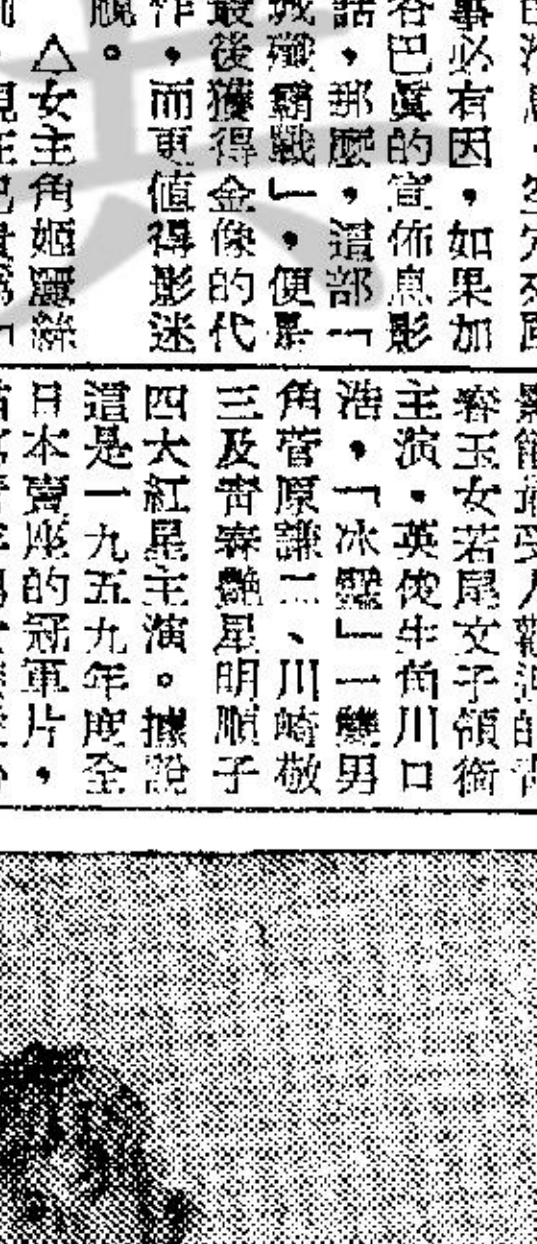 事必有因，如果加
容巴眞的宣佈息影
話，那麼，這部「
城殲霸戰」，便是
最後獲得金像的代
作，而更値得影迷
△女主角姬麗絲
容玉女若尾文子領銜
主演．英俊生角川口
浩，「冰壁」一雙男
角菅原謙二、川崎敬
三及靑春艷星明順子
四大紅星主演。據說
這是一九五九年度全
日本賣座的冠軍片，